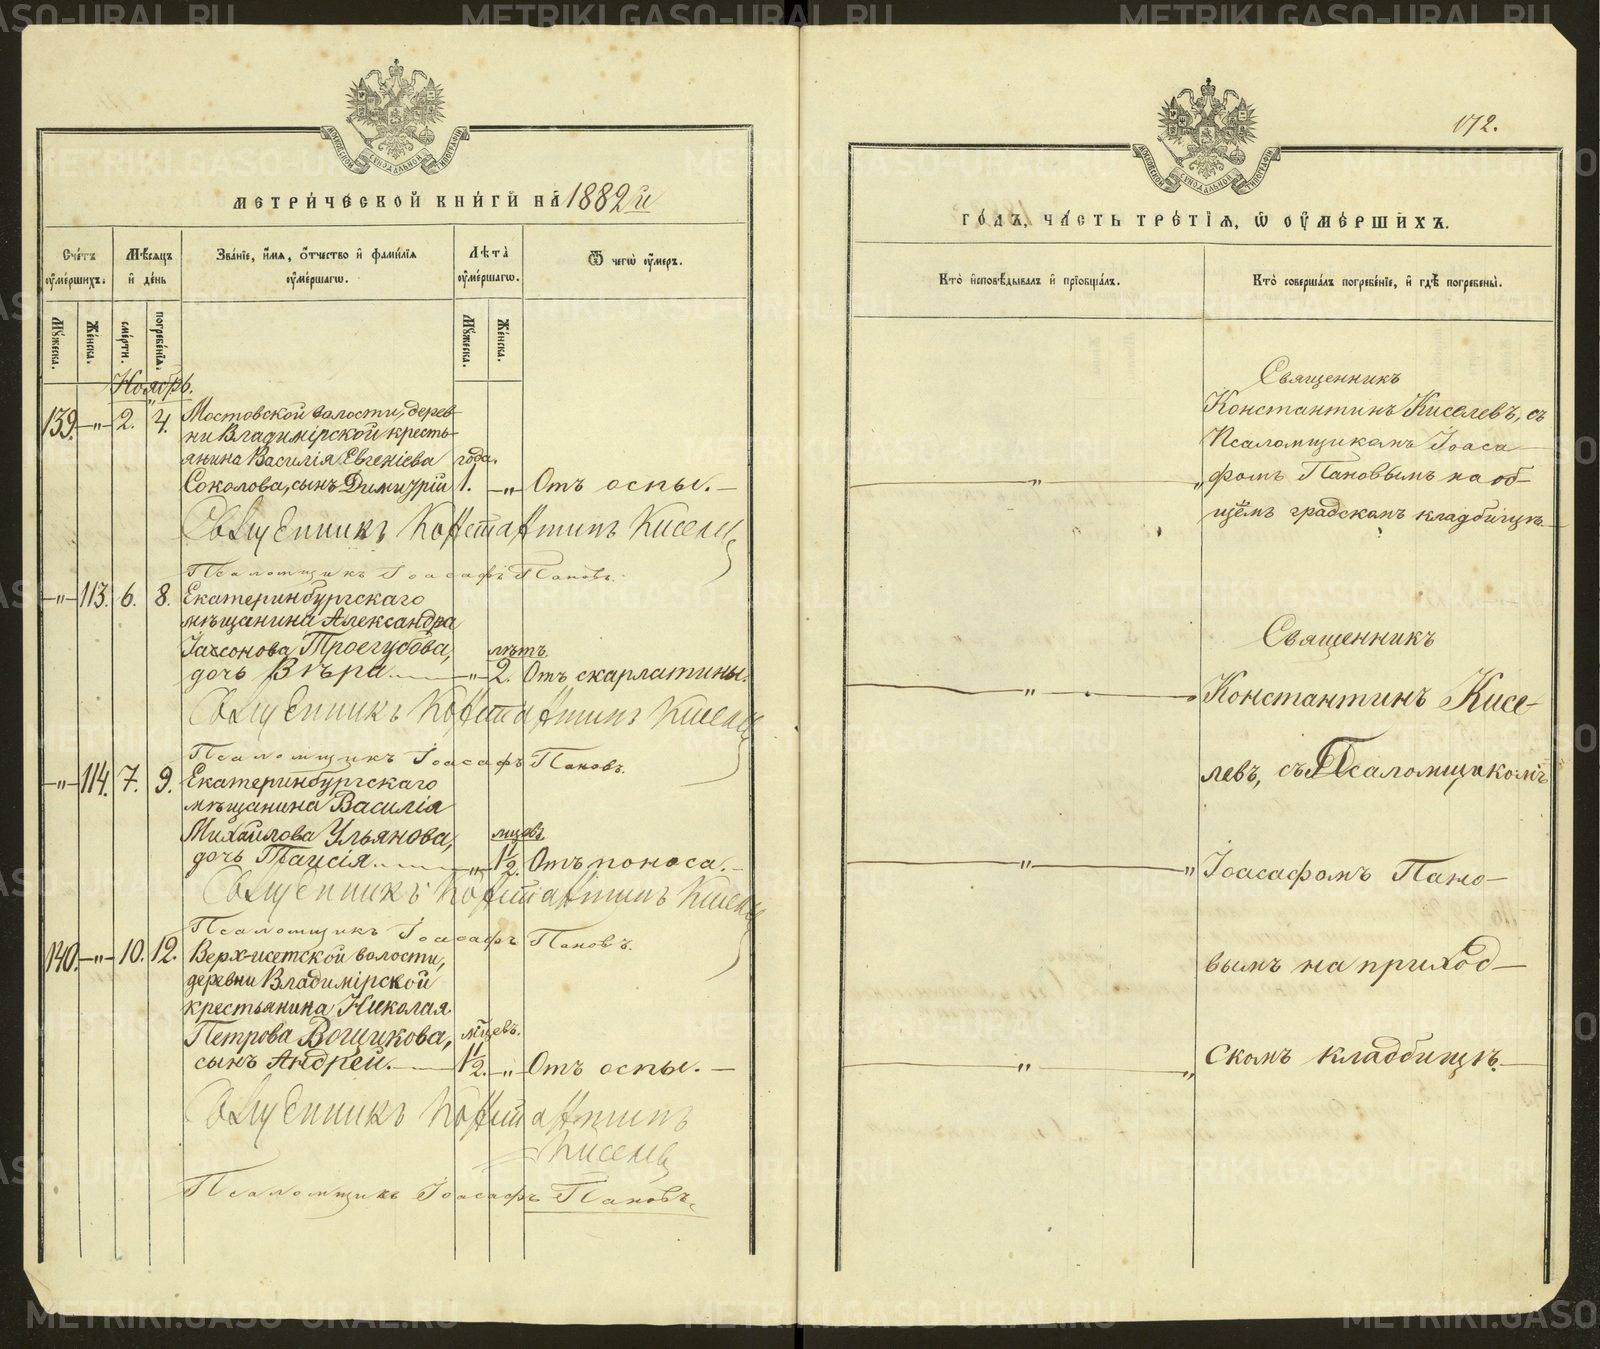 МЕТРИЧЕСКОЙ КНИГИ НА 1882й
Счетъ умершихъ.
Мѣсяцъ и день
Званіе, имя, отчество и фамилія умершаго.
Лѣта умершаго.
Ѿ чегѡ умеръ.
Мужеска.
Женска.
смерти.
погребенія.
Мужеска.
Женска.
Ноябрь.
139. — " — 2. 4. Мостовской волости, дерев-
ни Владимірской кресть-
янина Василія Евгеніева года.
Соколова, сынъ Димитрій 1. — " — Отъ оспы. —
Священникъ Константинъ Киселевъ
Псаломщикъ Іоасафъ Пановъ.
— " — 113. 6. 8. Екатеринбургскаго
мѣщанина Александра
Іассонова Троегубова, лѣтъ.
дочь Вѣра. — " — 2. Отъ скарлатины.
Священникъ Константинъ Киселевъ
Псаломщикъ Іоасафъ Пановъ.
— " — 114. 7. 9. Екатеринбургскаго
мѣщанина Василія
Михайлова Ульянова, мцовъ.
дочь Таисія. — " — 1½. Отъ поноса. —
Священникъ Константинъ Киселевъ
Псаломщикъ Іоасафъ Пановъ.
140. — " — 10. 12. Верх-исетской волости,
деревни Владимірской
крестьянина Николая
Петрова Вощикова, мцевъ.
сынъ Андрей. — 1½. — " — Отъ оспы. —
Священникъ Константинъ
Киселевъ
Псаломщикъ Іоасафъ Пановъ.
172.
ГОДЪ, ЧАСТЬ ТРЕТІЯ, Ѡ УМЕРШИХЪ.
Кто исповѣдывалъ и пріобщалъ.
Кто совершалъ погребеніе, и гдѣ погребены.
Священникъ
Константинъ Киселевъ, съ
Псаломщикомъ Іоаса
— " — " фомъ Пановымъ на об-
щемъ градскомъ кладбищѣ. —
Священникъ
— " — Константинъ Кисе-
левъ, съ Псаломщикомъ
— " — " Іоасафомъ Пано-
вымъ на приход-
— " — " скомъ кладбищѣ. —
METRIKI.GASO-URAL.RU